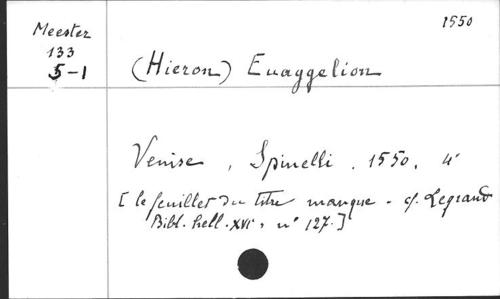 1550
Meester
133
5-1
(Hieron) Euaggelion
Venise, Spinelli. 1550. 4°
[le feuillet du titre manque - cf. Legrand
Bibl. hell. XVIe, n° 127.]